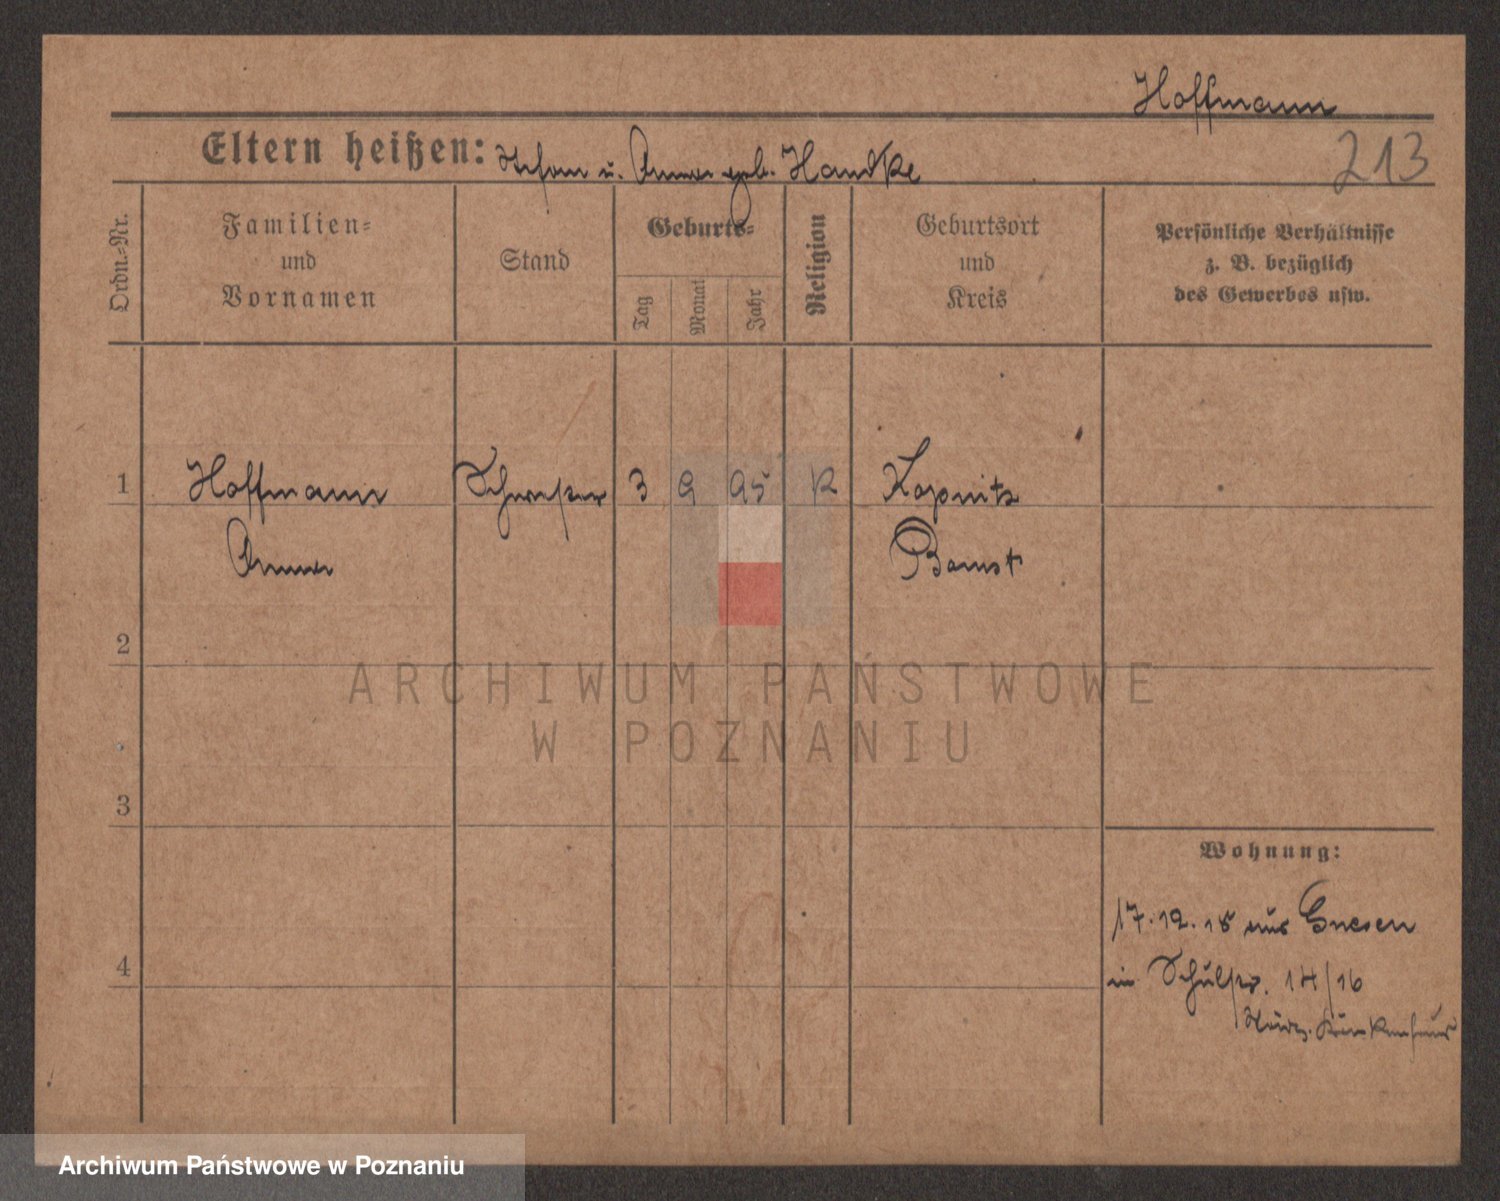 Hoffmann
Eltern heißen: Stefan u. Anna geb. Handke
213
Ordn.-Nr.
Familien-
und
Vornamen
Stand
Geburts-
Tag
Monat
Jahr
Religion
Geburtsort
und
Kreis
Persönliche Verhältnisse
z. B. bezüglich
des Gewerbes usw.
1
Hoffmann
Schwester
3
9
95
K
Kopnitz
Anna
Bomst
2
ARCHIWUM PAŃSTWOWE
W POZNANIU
3
Wohnung:
17.12.15 aus Gnesen
4
in Schulstr. 14/16
Städt. Krankenhaus
Archiwum Państwowe w Poznaniu